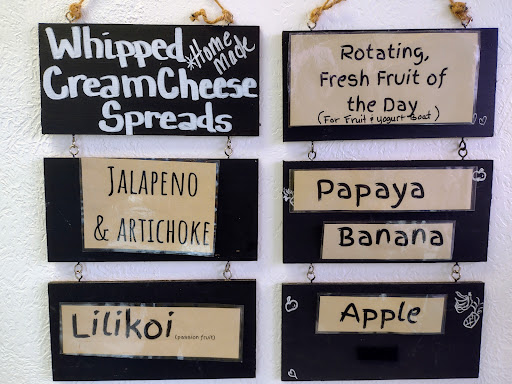 Whipped
*Home Made
Cream Cheese
Spreads
JALAPENO
& ARTICHOKE
Lilikoi (passion fruit)
Rotating,
Fresh Fruit of
the Day
(For Fruit & Yogurt Boat)
Papaya
Banana
Apple